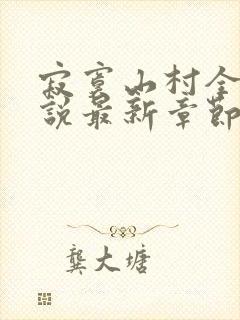 寂寞山村全
說最新章節
龔大塘